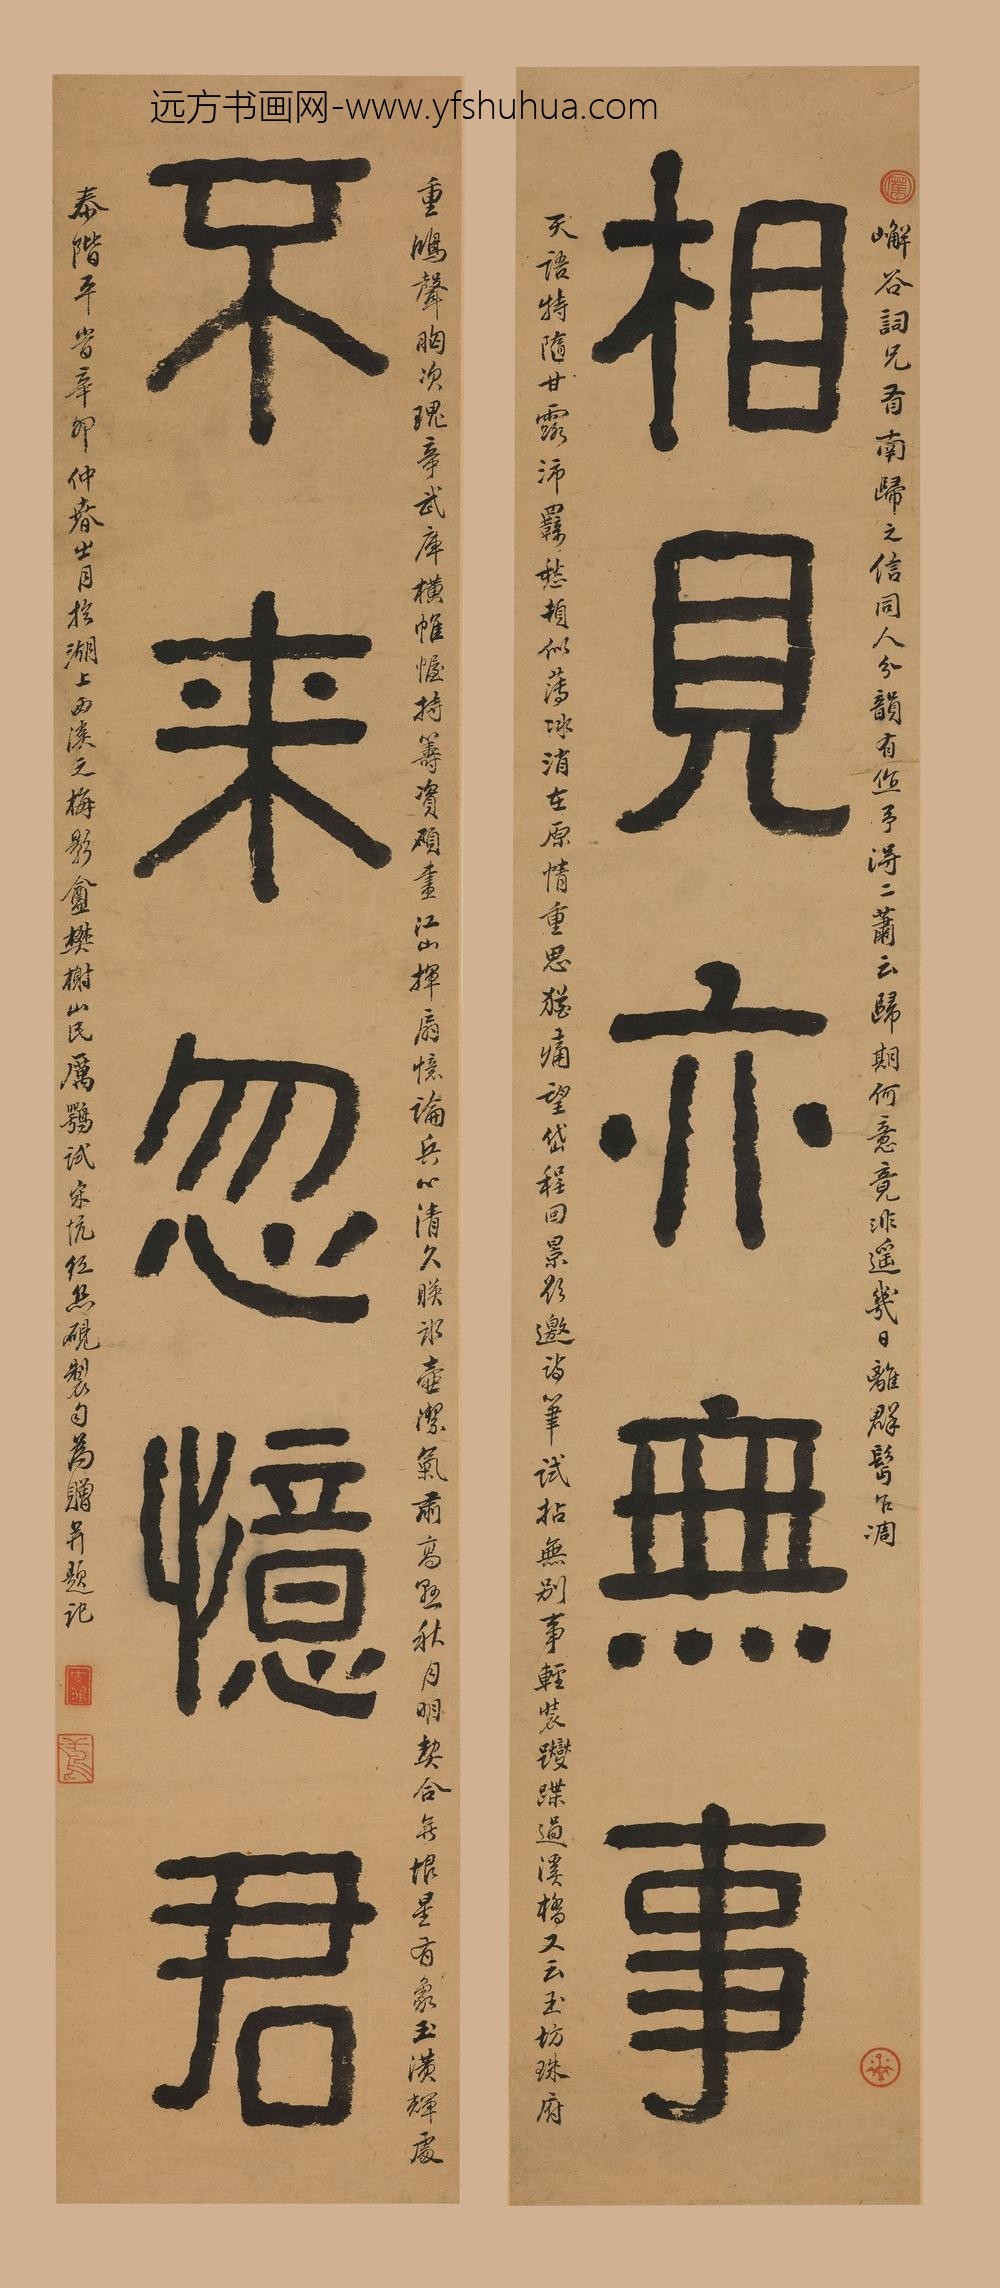 远方书画网-www.yfshuhua.com
相見亦無事
不来忽憶君
嶰谷詞兄有南歸之信同人分韻有作予得二蕭云歸期何意竟非遥幾日離群鬢乍凋
天語特隨甘露沛羈愁頓似薄冰消在原情重思猶痛望岱程回景欲邀詩筆試拈無別事輕装躞蹀過溪橋又云玉坊珠府
重鴻聲胸次瑰章武庫橫帷幄持籌資碩畫江山揮扇憶論兵心清久映冰壺潔氣肅高懸秋月明契合無垠星有象玉潢輝處
泰階平當辛卯仲春出月於湖上西溪之梅影盦樊榭山民厲鶚試宋坑紅絲硯製句為贈并題記